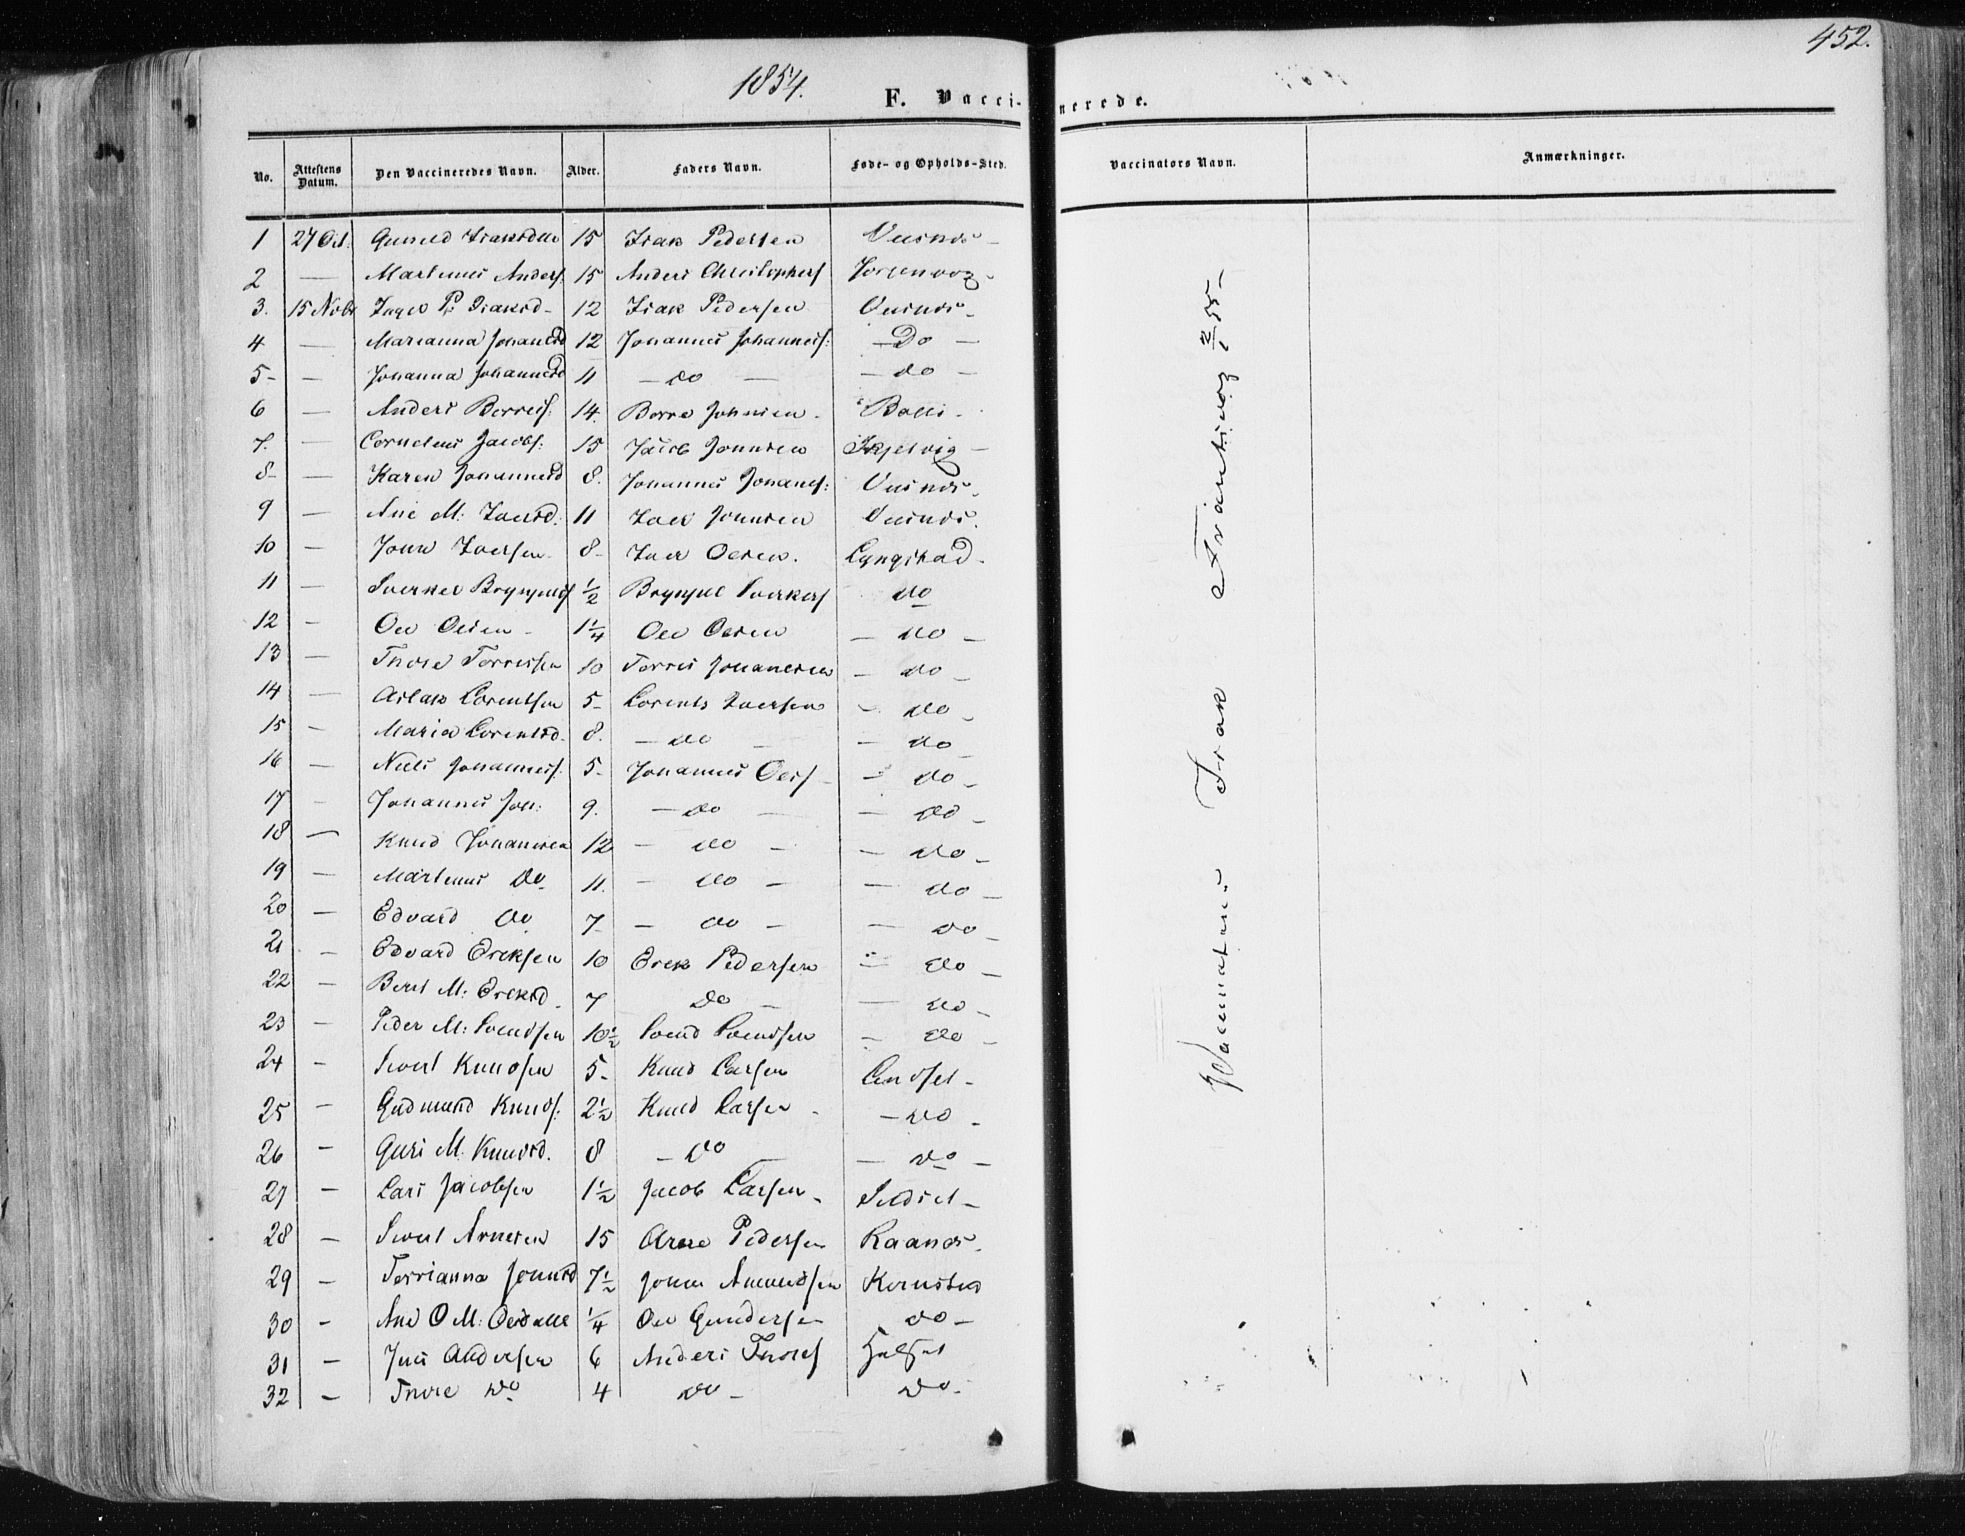 452.
1854.
F. Vaccinerede.
No. Attestens Datum. Den Vaccineredes Navn. Alder. Faders Navn. Føde- og Opholds-Sted. Vaccinators Navn. Anmærkninger.
1 27 Oct. Gunild Isaksdtt 15 Isak Pedersen
2 — Martinus Anders: 15 Anders Christophers
3. 15 Nobr P: Isaksd- 12 Isak Pedersen
4 — Marianna Johansd 12 Johannes Johannes: — Do —
5- — Johanna Johannesd 11 — do — — do —
6 — Anders Borres: 14. Borre Johnsen -
7. — Cornelius Jacobs: 15 Jacob Johnsen
8- — Karen Johannesd 8. Johannes Johanes:
9 — Ane M: Iversd: 11 Iver Johnsen
10 — John Iversen 8- Iver Olsen. Lyngstad -
11 — Sverker Brynjuls 1/2 Brynjul Sverkers do
12 — Ole Olsen - 1 1/4 Ole Olsen — do —
13 — Thore Torresen 10 Torres Johanesen — do —
14 — Aslak Lorentsen 5- Lorents Iversen - do -
15 — Maria Lorentsd- 8. — do — — do
16 — Niels Johannes: 5- Johannes Ols — do -
17 — Johannes Joh: 9. — do — — do -
18 — Knud Johannesen 12 — do — — do -
19 — Martinus Do 11. — do — — do —
20 — Edvard Do 7- — do — — do -
21 — Edvard Ericksen 10 Erick Pedersen — do —
22 — Berit M: Ericksd- 7 Do — — do -
23 — Peder M: Svendsen 10 1/2 Svend Svendsen — do —
24 — Sivert Knudsen 5- Knud Larsen
25 — Gudmund Knuds: 2 1/2 Knud Larsen - — do -
26 — Guri M: Knudsd. 8 — do — — do —
27 — Lars Jacobsen 1 1/2 Jacob Larsen -
28 — Sivert Arnesen 15 Arne Pedersen Raanes.
29 — Torrianna Johnsd 7 1/2 John Amundsen
30 — Ane O M: Olsdatter 1/4 Ole Gundersen do —
31 — Jens Andersen 6 Anders Thores
32 — Thore do 4 do — do -
Vaccinateur Isak